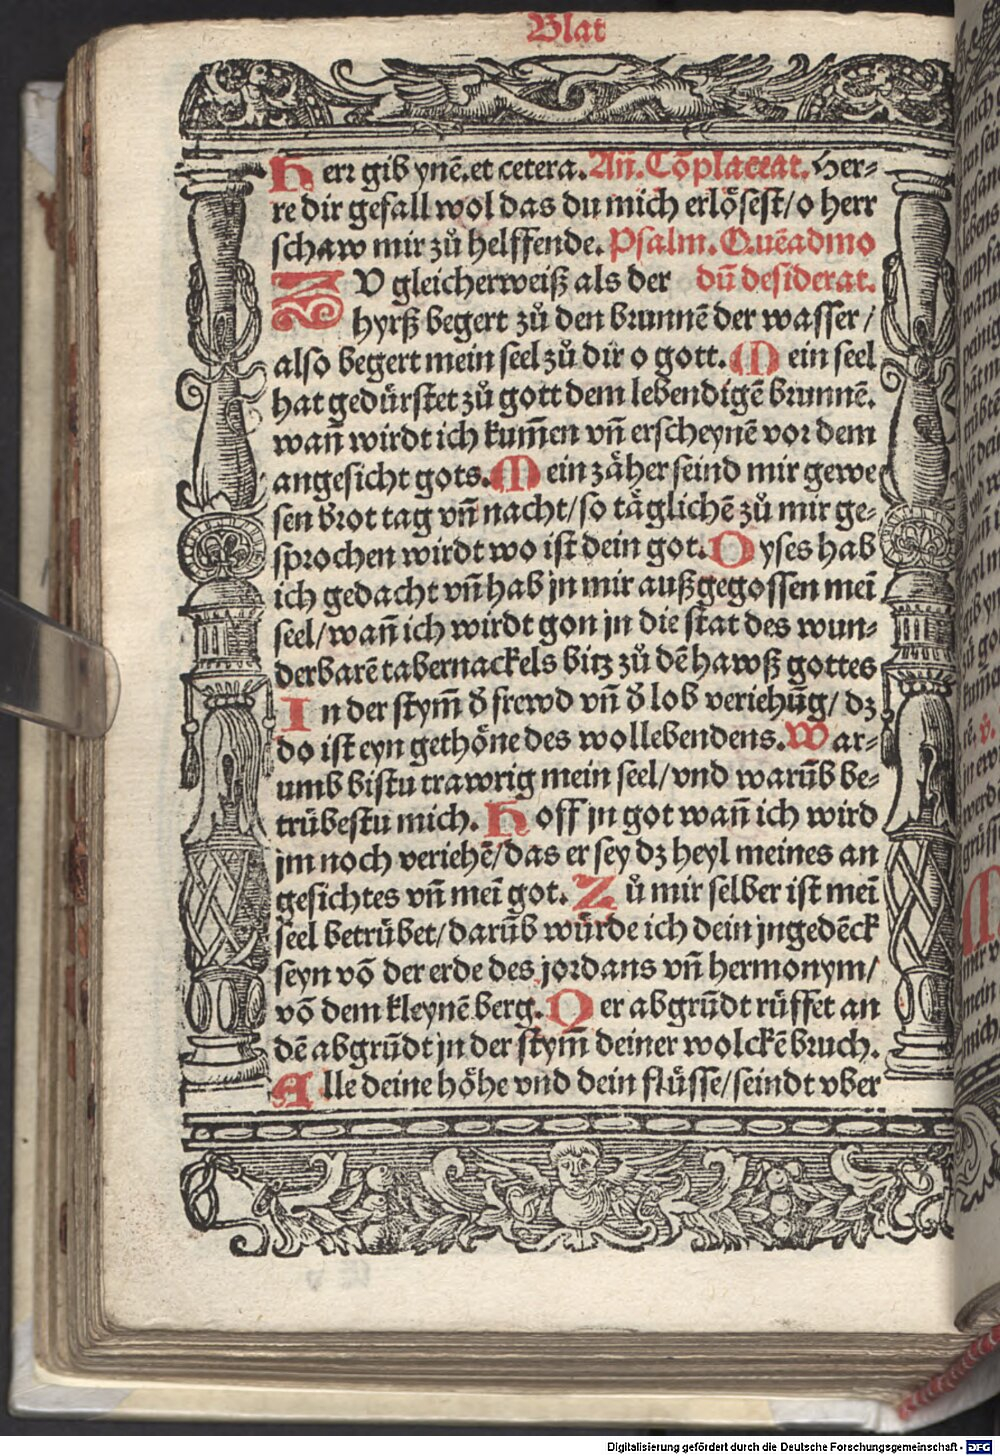 Blat
Herr gib ynē.et cetera. Añ. Cōplaceat. Her⸗
re dir gefall wol das du mich erlösest/o herr
schaw mir zů helffende. Psalm. Quēadmo
ZU gleicherweiß als der dū desiderat.
hyrß begert zů den brunnē der wasser/
also begert mein seel zů dir o gott. Mein seel
hat gedürstet zů gott dem lebendigē brunnē.
wañ wirdt ich kum̄en vñ erscheynē vor dem
angesicht gots. Mein zäher seind mir gewe
sen brot tag vñ nacht/so täglichē zů mir ge⸗
sprochen wirdt wo ist dein got. Dyses hab
ich gedacht vñ hab jn mir außgegossen meī
seel/wañ ich wirdt gon jn die stat des wun⸗
derbarē tabernackels bitz zů dē hawß gottes
In der stym̄ d̄ frewd vñ d̄ lob veriehūg/dz
do ist eyn gethöne des wollebendens. War⸗
umb bistu trawrig mein seel/vnd warūb be⸗
trübestu mich. Hoff jn got wañ ich wird
jm noch veriehē/das er sey dz heyl meines an
gesichtes vñ meī got. Zů mir selber ist meī
seel betrübet/darūb würde ich dein jngedēck
seyn vō der erde des jordans vñ hermonym/
vō dem kleynē berg. Der abgrūdt rüffet an
dē abgrūdt jn der stym̄ deiner wolckē bruch.
Alle deine höhe vnd dein flüsse/seindt vber
Digitalisierung gefördert durch die Deutsche Forschungsgemeinschaft - DFG